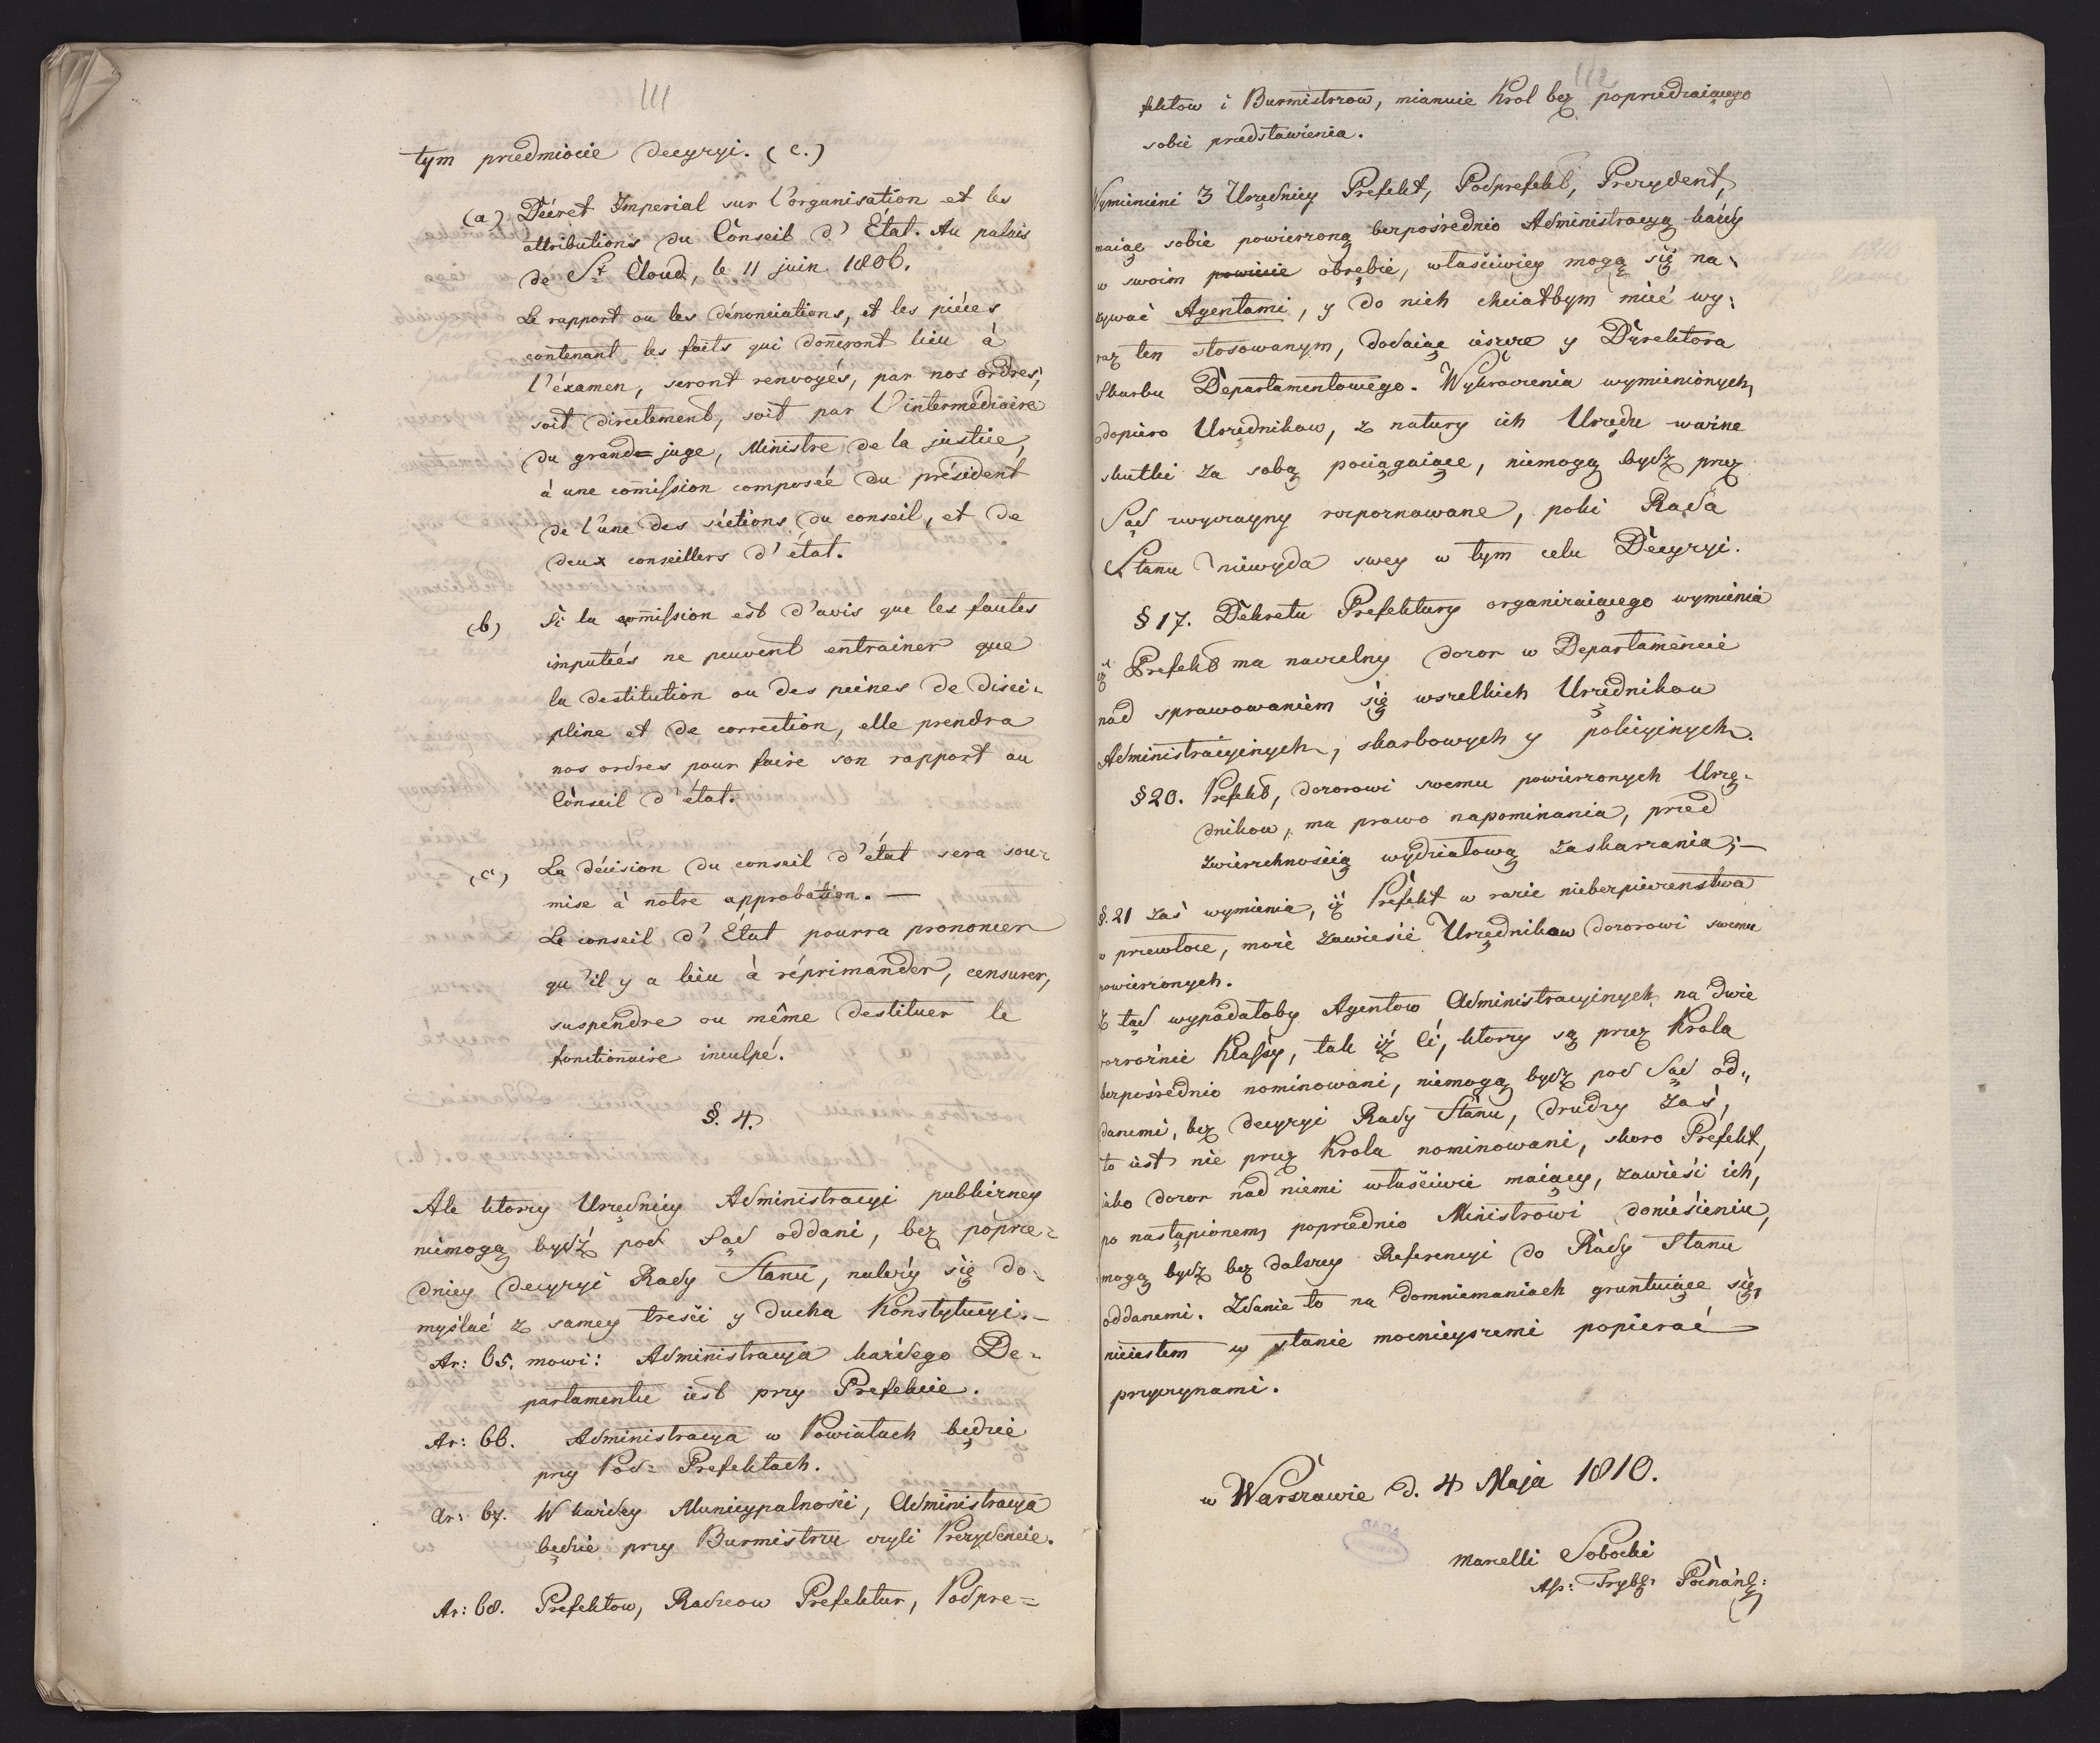 111
tym przedmiocie decyzyi. (c.)
(a) Décret Imperial sur l'organisation et les
attributions du Conseil d'Etat. Au palais
de St Cloud, le 11 juin 1806.
Le rapport ou les dénonciations, et les piéces
contenant les faits qui don̄eront lieu à
l'éxamen, seront renvoyés, par nos ordres,
soit directement, soit par l'intermédiaire
du grand=juge, Ministre de la justice,
à une com̄ission composée du président
de l'une des séctions du conseil, et de
deux conseillers d'état.
(b) Si la com̄ission est d'avis que les fautes
imputées ne peuvent entrainer que
la destitution ou des peines de disci-
pline et de correction, elle prendra
nos ordres pour faire son rapport au
Conseil d'état.
(c) La décision du conseil d'état sera sou-
mise à notre approbation. —
Le conseil d'Etat pourra prononcer
qu'il y a lieu à réprimander, censurer,
suspendre ou même destituer le
fonction̄aire inculpé.
§. 4.
Ale ktorzy Urzędnicy Administracyi publiczney
niemogą bydź pod Sąd oddani, bez poprze-
dniey decyzyi Rady Stanu, należy się do-
myślać z samey treści y ducha Konstytucyi. —
Ar: 65. mowi: Administracya każdego De-
partamentu iest przy Prefekcie.
Ar: 66. Administracya w Powiatach będzie
przy Pod= Prefektach.
Ar: 67. W każdey Municypalności, Administracya
będzie przy Burmistrzu czyli Prezydencie.
Ar: 68. Prefektow, Radzcow Prefektur, Podpre=
112
fektow i Burmistrzow, mianuie Krol bez poprzedzaiącego
sobie przedstawienia.
Wymienieni 3 Urzędnicy Prefekt, Podprefekt, Prezydent,
maiąc sobie powierzoną bezpośrednio Administracyą każdy
w swoim powiecie obrębie, właściwiey mogą się na-
zywać Agentami, y do nich chciałbym mieć wy-
raz ten stosowanym, dodaiąc ieszcze y Dyrektora
Skarbu Departamentowego. Wykroczenia wymienionych
dopiero Urzędnikow, z natury ich Urzędu ważne
skutki za sobą pociągaiące, niemogą bydź przez
Sąd zwyczayny rozpoznawane, poki Rada
Stanu niewyda swey w tym celu Decyzyi.
§ 17. Dekretu Prefektury organizuiącego wymienia
iż Prefekt ma naczelny dozor w Departamencie
nad sprawowaniem się wszelkich Urzędnikow
Administracyinych, skarbowych y policyinych.
§ 20. Prefekt, dozorowi swemu powierzonych Urzę-
dnikow, ma prawo napominania, przed
zwierzchnością wydziałową zaskarżania; —
§. 21 zaś wymienia, iż Prefekt w razie niebezpieczenstwa
w przewłoce, może zawiesić Urzędnikow dozorowi swemu
powierzonych.
Z tąd wypadałoby Agentow Administracyinych na dwie
rozrożnić Klassy, tak iż Ci, ktorzy są przez Krola
bezpośrednio nominowani, niemogą bydź pod Sąd od-
danemi, bez decyzyi Rady Stanu, drudzy zaś,
to iest nie przez Krola nominowani, skoro Prefekt,
iako dozor nad niemi właściwie maiący, zawiesi ich,
po nastąpionem poprzednio Ministrowi doniesieniu,
mogą bydź bez dalszey Referencyi do Rady Stanu
oddanemi. Zdanie to na domniemaniach gruntuiące się,
nieiestem w stanie mocnieyszemi popierać
przyczynami.
w Warszawie d. 4 Maja 1810.
Marcelli Sobocki
Ass: Tryb: Poznańs: